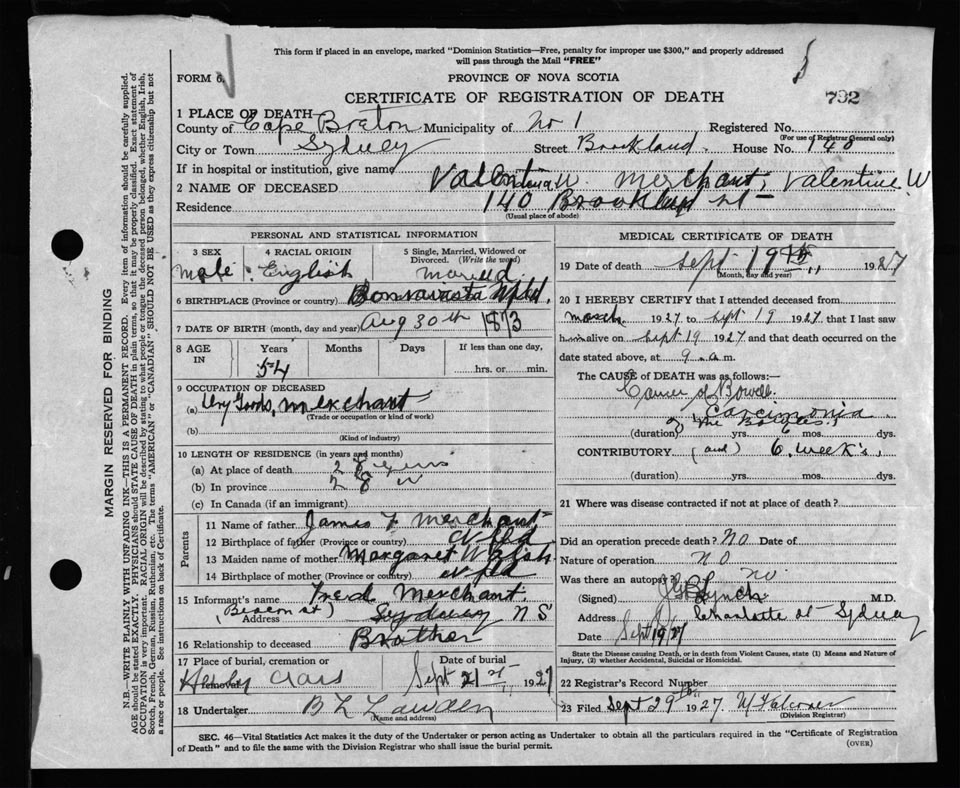 This form if placed in an envelope, marked "Dominion Statistics—Free, penalty for improper use $300," and properly addressed
will pass through the Mail "FREE"
FORM 6.
PROVINCE OF NOVA SCOTIA
CERTIFICATE OF REGISTRATION OF DEATH
792
1 PLACE OF DEATH
County of Cape Breton Municipality of No 1 Registered No.
(For use of Registrar General only)
City or Town Sydney Street Brookland House No. 140
If in hospital or institution, give name
2 NAME OF DECEASED Valentine W. Merchant, Valentine W
Residence 140 Brookland St
(Usual place of abode)
PERSONAL AND STATISTICAL INFORMATION
3 SEX 4 RACIAL ORIGIN 5 Single, Married, Widowed or
Divorced. (Write the word)
Male English Married
6 BIRTHPLACE (Province or country) Bonavista Nfld.
7 DATE OF BIRTH (month, day and year) Aug 30th 1873
8 AGE IN Years Months Days If less than one day,
54 hrs. or min.
9 OCCUPATION OF DECEASED
(a) Dry Goods, Merchant
(Trade or occupation or kind of work)
(b)
(Kind of industry)
10 LENGTH OF RESIDENCE (in years and months)
(a) At place of death 28 years
(b) In province 28 "
(c) In Canada (if an immigrant)
Parents
11 Name of father James F Merchant
12 Birthplace of father (Province or country) Nfld
13 Maiden name of mother Margaret Walsh
14 Birthplace of mother (Province or country) Nfld
15 Informant's name Fred Merchant
(Beacon st) Address Sydney N S
16 Relationship to deceased Brother
17 Place of burial, cremation or removal Date of burial
Sept 21st 1927
18 Undertaker
(Name and address)
MEDICAL CERTIFICATE OF DEATH
19 Date of death Sept 19th 1927
(Month, day and year)
20 I HEREBY CERTIFY that I attended deceased from
March 1927 to Sept 19 1927 that I last saw
him alive on Sept 19 1927 and that death occurred on the
date stated above, at 9 a.m.
The CAUSE OF DEATH was as follows:
Cancer of Bowell
(duration) yrs. mos. dys.
CONTRIBUTORY (and) 6. weeks,
(duration) yrs. mos. dys.
21 Where was disease contracted if not at place of death?
Did an operation precede death? No Date of
Nature of operation No
Was there an autopsy? no
(Signed) Lynch M.D.
Address Charlotte st Sydney
Date Sept 19 27
State the Disease causing Death, or in death from Violent Causes, state (1) Means and Nature of
Injury, (2) whether Accidental, Suicidal or Homicidal.
22 Registrar's Record Number
23 Filed Sept 29th 1927. W Falconer
(Division Registrar)
SEC. 46—Vital Statistics Act makes it the duty of the Undertaker or person acting as Undertaker to obtain all the particulars required in the "Certificate of Registration
of Death" and to file the same with the Division Registrar who shall issue the burial permit.
(OVER)
MARGIN RESERVED FOR BINDING
N.B.—WRITE PLAINLY WITH UNFADING INK—THIS IS A PERMANENT RECORD. Every item of information should be carefully supplied.
AGE should be stated EXACTLY. PHYSICIANS should STATE CAUSE OF DEATH in plain terms, so that it may be properly classified. Exact statement of
OCCUPATION is very important. RACIAL ORIGIN will be described by stating to what people or tongue the deceased person belonged, whether English, Irish,
Scotch, French, German, Russian, Ruthenian, etc. The terms "AMERICAN" or "CANADIAN" SHOULD NOT BE USED as they express citizenship but not
a race or people. See instructions on back of Certificate.